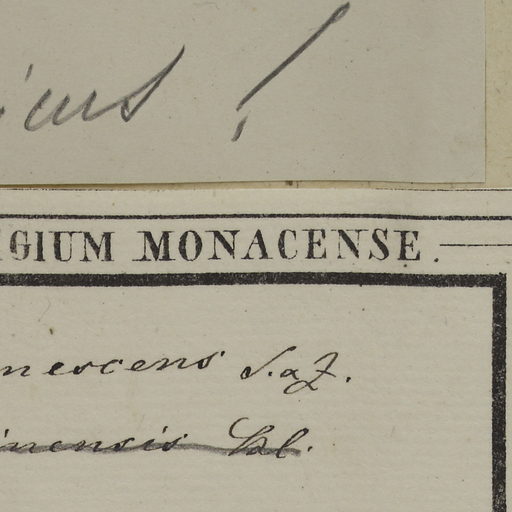 icus !
GIUM MONACENSE.
nescens S. a Z.
inensis Sal.